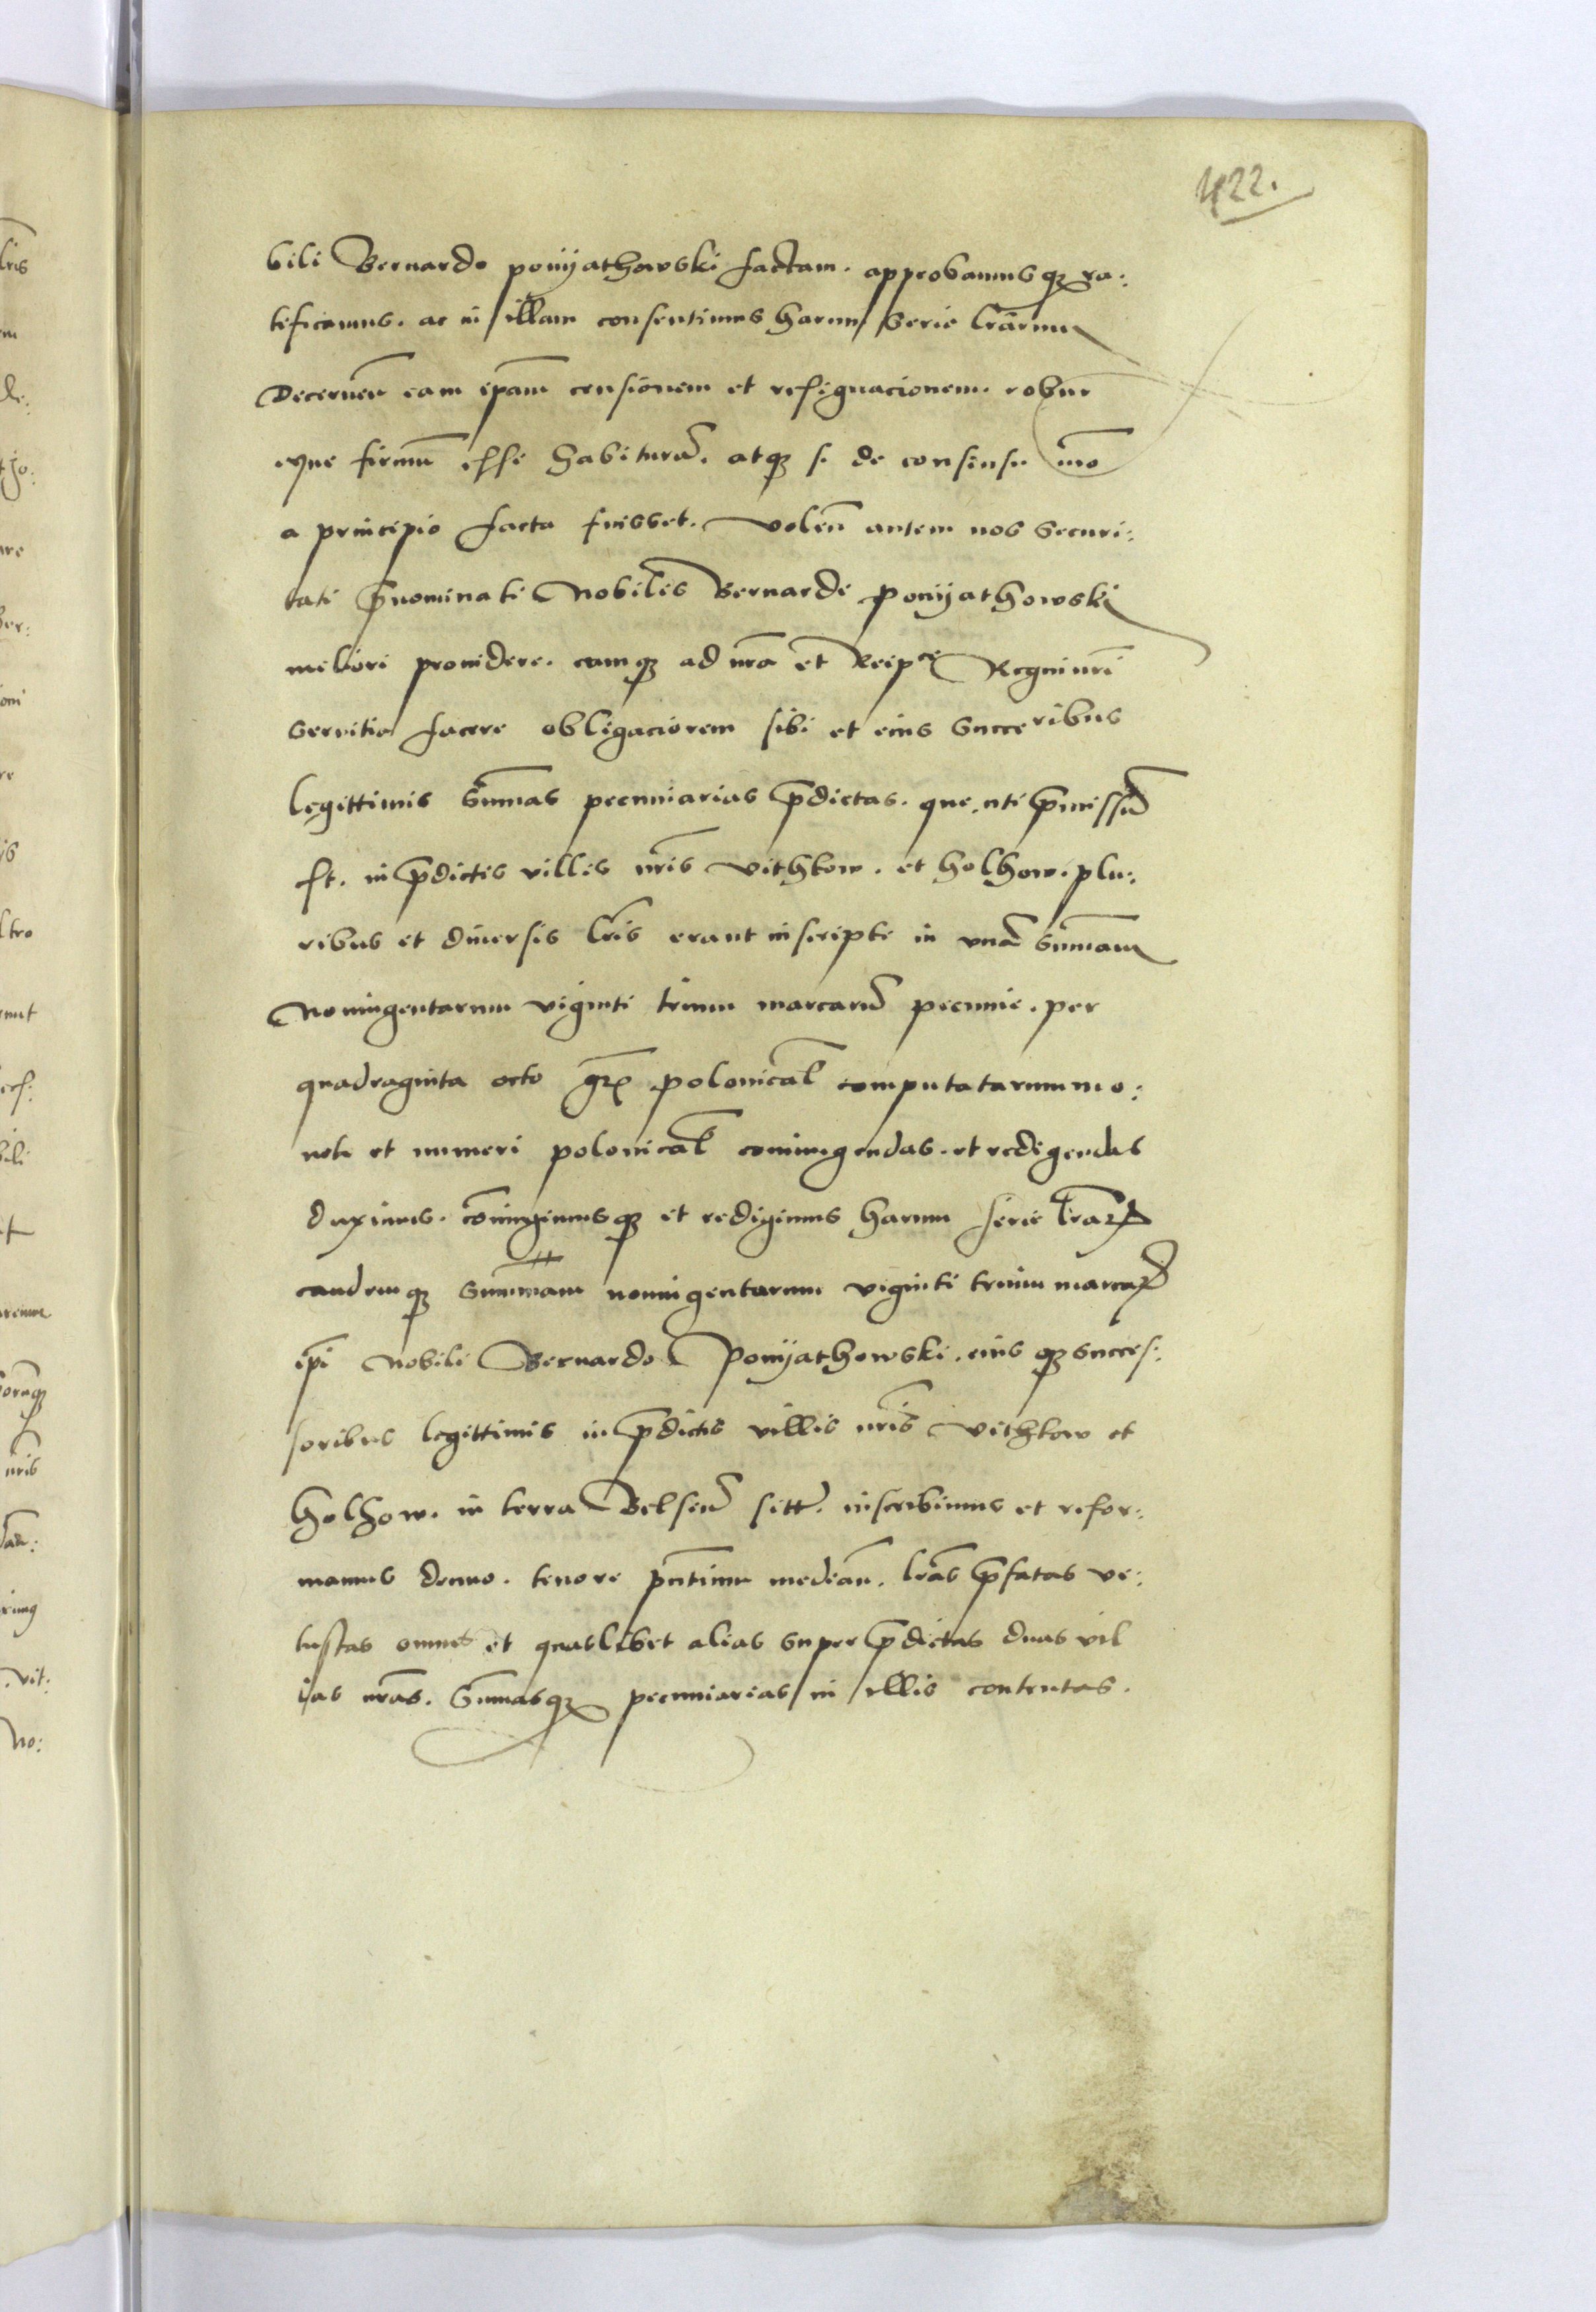 422.
bili Bernardo ponyathowski factam. approbamus qz ra:
tificamus. ac in illam consentimus harum serie lr̄arum
Decernen̄ eam ip̄am censionem et resignacionem. robur
eque firmū esse habiturā. atqz si de consensu nr̄o
a principio facta fuisset. Volen̄ autem nos securi:
tati p̄nominati Nobilis Bernardi ponyathowski
meliori providere. eumqz ad nr̄a et Reip̄ce Regni nr̄i
servitia facere obligaciorem sibi et eius succeribus
legittimis Sum̄as pecuniarias p̄dictas. que uti p̄missū
est. in p̄dictis villis nr̄is vithkow. et holhow. plu:
ribus et diversis lr̄is erant inscripte in unā sum̄am
Noningentarum viginti trium marcarū pecunie. per
quadraginta octo gr̄ polonical̄ computatarum mo:
nete et numeri polonical̄ coniungendas. et redigendas
duximus. cōiungimus qz et redigimus harum serie lr̄arz
eandem qz summam noningentarum viginti trium marcarz
ip̄i Nobili Bernardo Ponyathowski. eius qz succes:
soribus legittimis in p̄dictis villis nr̄is vithkow et
holhow. in terra Belsen̄ sitt̄. inscribimus et refor:
mamus denuo. tenore pn̄tium median̄. lr̄as p̄fatas ve:
tustas omnes et quaslibet alias super p̄dictas duas vil
las nr̄as. Sum̄asqz pecuniarias in illis contentas.